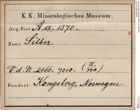 K. K. Mineralogisches Museum.
Acq. Post A.a. 1570.
Name Silber.
Fundort. Kongsberg, Norwegen